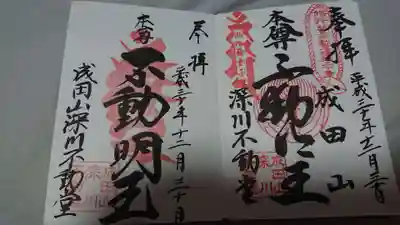 奉拝
成田山
平成三十年十二月三十日
本尊
不動明王
深川不動堂
奉拝
平成三十年十二月三十日
本尊
不動明王
成田山深川不動堂